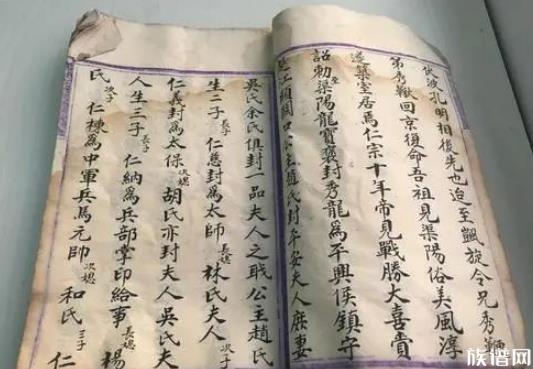 伏波孔明相後先也迨至颽旋令兄秀
第秀猷回京復命吾祖見渠陽俗美風淳
遂築室居焉仁宗十年帝見戰勝大喜貴
詔勅渠陽龍寶褒封秀龍為平興侯鎮守
江關口公主趙氏封平安夫人庶妻
吳氏余氏俱封一品夫人之職公主趙氏
生二子長子仁慈封為太師長媳林氏夫人次子
仁義封為太保次媳胡氏亦封夫人吳氏夫
人生三子長子仁納為兵部掌印給事長媳楊
氏次子仁棟為中軍兵馬元帥次媳和氏三子仁
族谱网